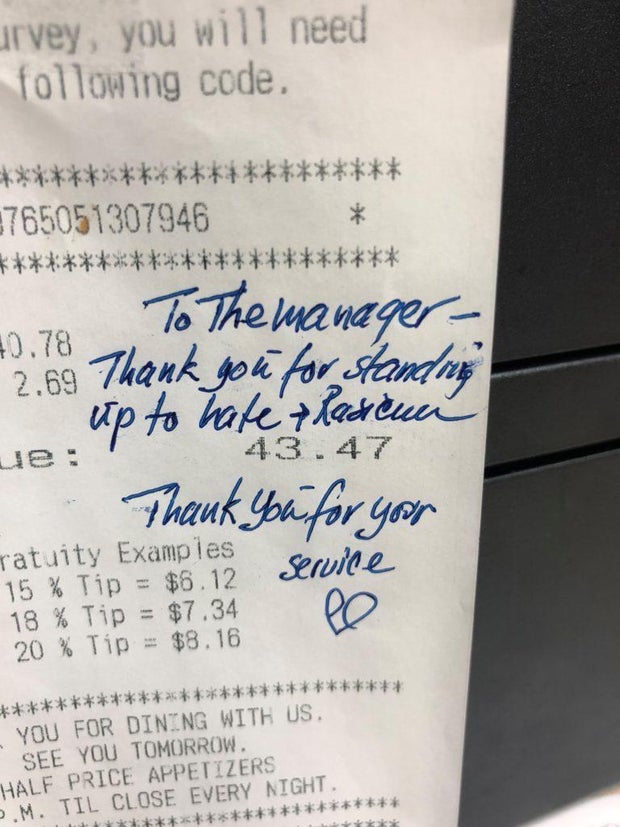 urvey, you will need
following code.
************************
0765051307946 *
************************
To The manager -
40.78
Thank you for standing
2.69
up to hate + Racism
ue: 43.47
Thank you for your
service
ratuity Examples
15 % Tip = $6.12
18 % Tip = $7.34
20 % Tip = $8.16
************************
YOU FOR DINING WITH US.
SEE YOU TOMORROW.
HALF PRICE APPETIZERS
P.M. TIL CLOSE EVERY NIGHT.
************************